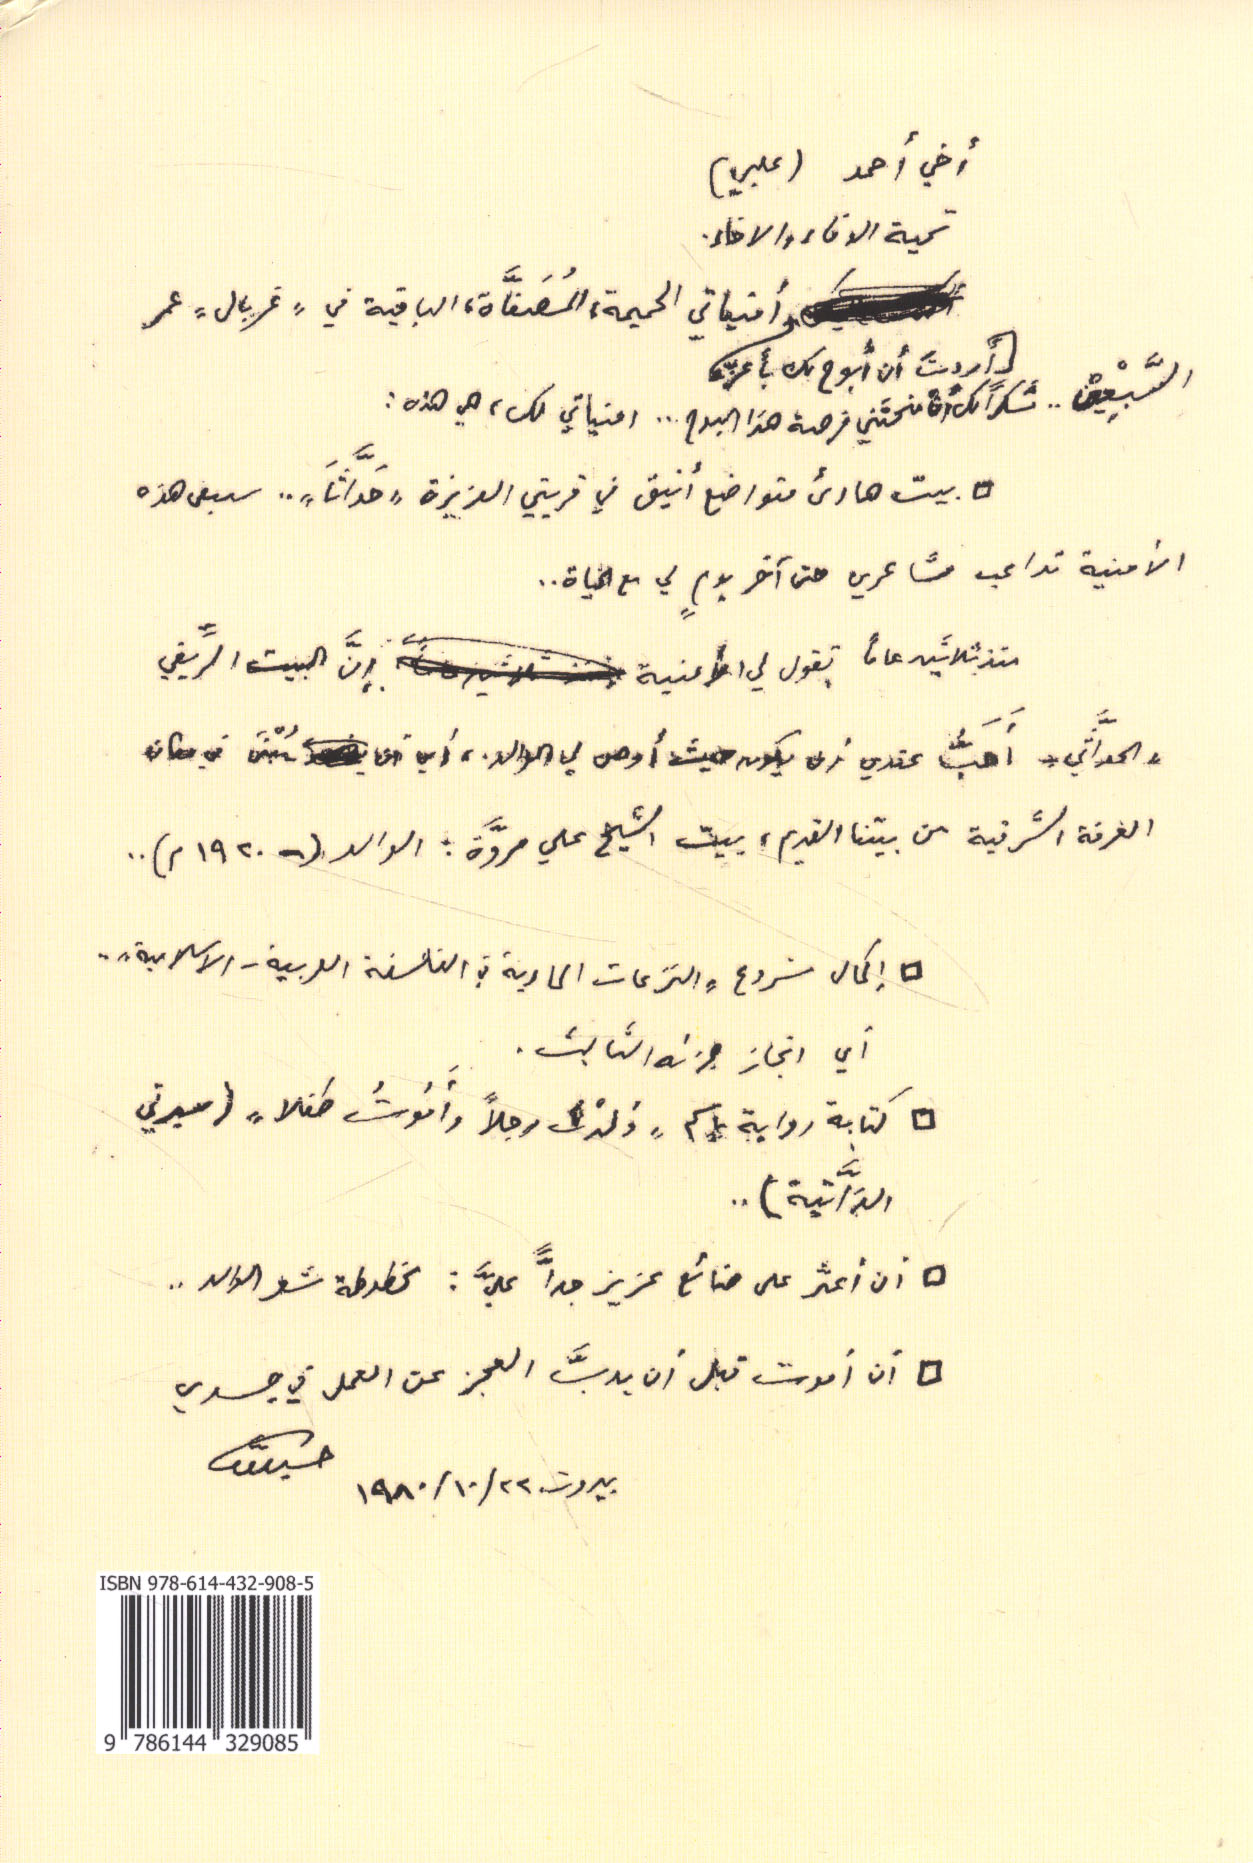 أخي أحمد (علبي)
تحية الوفاء والاخاء.
أمنياتي الحميمة، المُصَفَّاة، الباقية في «غربال» عمر
أردتَ أن أبوح لك بأعزّ
السَّبْعِيْن .. شكراً لك أن منحتَني فرصة هذا البوح ... امنياتي لك، هي هذه:
□ بيت هادئ متواضع أنيق في قريتي العزيزة «حَدَّاثَا» .. ستبقى هذه
الأمنية تداعب مشاعري حتى آخر يومٍ لي مع الحياة ..
منذ ثلاثين عاماً تقول لي الأمنية إنَّ البيت الرِّيفي
«الحدَّاثي» أَحَبُّ عندي أن يكون حيث أوصى لي الوالد، أي أن يُبْنَى في مكان
الغرفة الشرقية من بيتنا القديم، بيت الشيخ علي مروَّة: الوالد (- ١٩٢٠ م) ..
□ إكمال مشروع «النزعات المادية في الفلسفة العربية - الاسلامية» ..
أي انجاز جزئه الثالث.
□ كتابة رواية باسم «وُلِدْتُ رجلاً وأَمُوتُ طفلا» (سيرتي
الذَّاتية) ..
□ أن أعثر على ضائع عزيز جداً عليَّ: مخطوطة شعر الوالد ..
□ أن أموت قبل أن يدبَّ العجز عن العمل في جسدي
حسين
بيروت ٢٢/١٠/١٩٨٠
ISBN 978-614-432-908-5
9 786144 329085